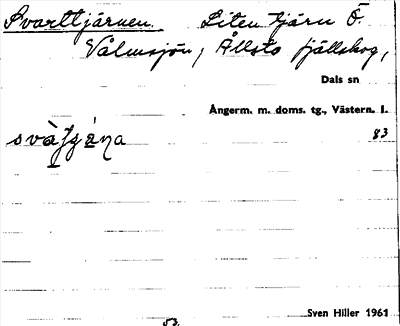 Svarttjärnen. Liten tjärn Ö.
Vålmsjön, Ållsto fjällskog,
Dals sn
Ångerm. m. doms. tg., Västern. l.
83
53.
Sven Hiller 1961